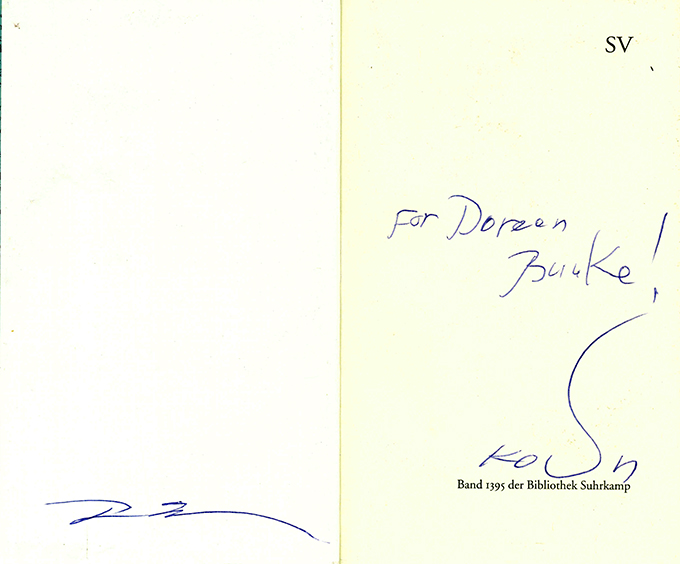 SV
For Doreen
Bunke!
Ko Un
Band 1395 der Bibliothek Suhrkamp